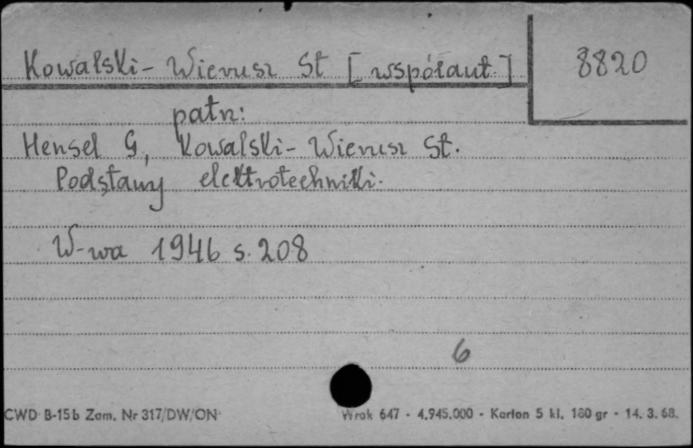 Kowalski-Wierusz St [współaut.] 8820
patrz:
Hensel G, Kowalski-Wierusz St.
Podstawy elektrotechniki.
W-wa 1946 s. 208
6
CWD B-15b Zam. Nr 317/DW/ON Wrok 647 - 4.945.000 - Karton 5 kl. 180 gr - 14. 3. 68.